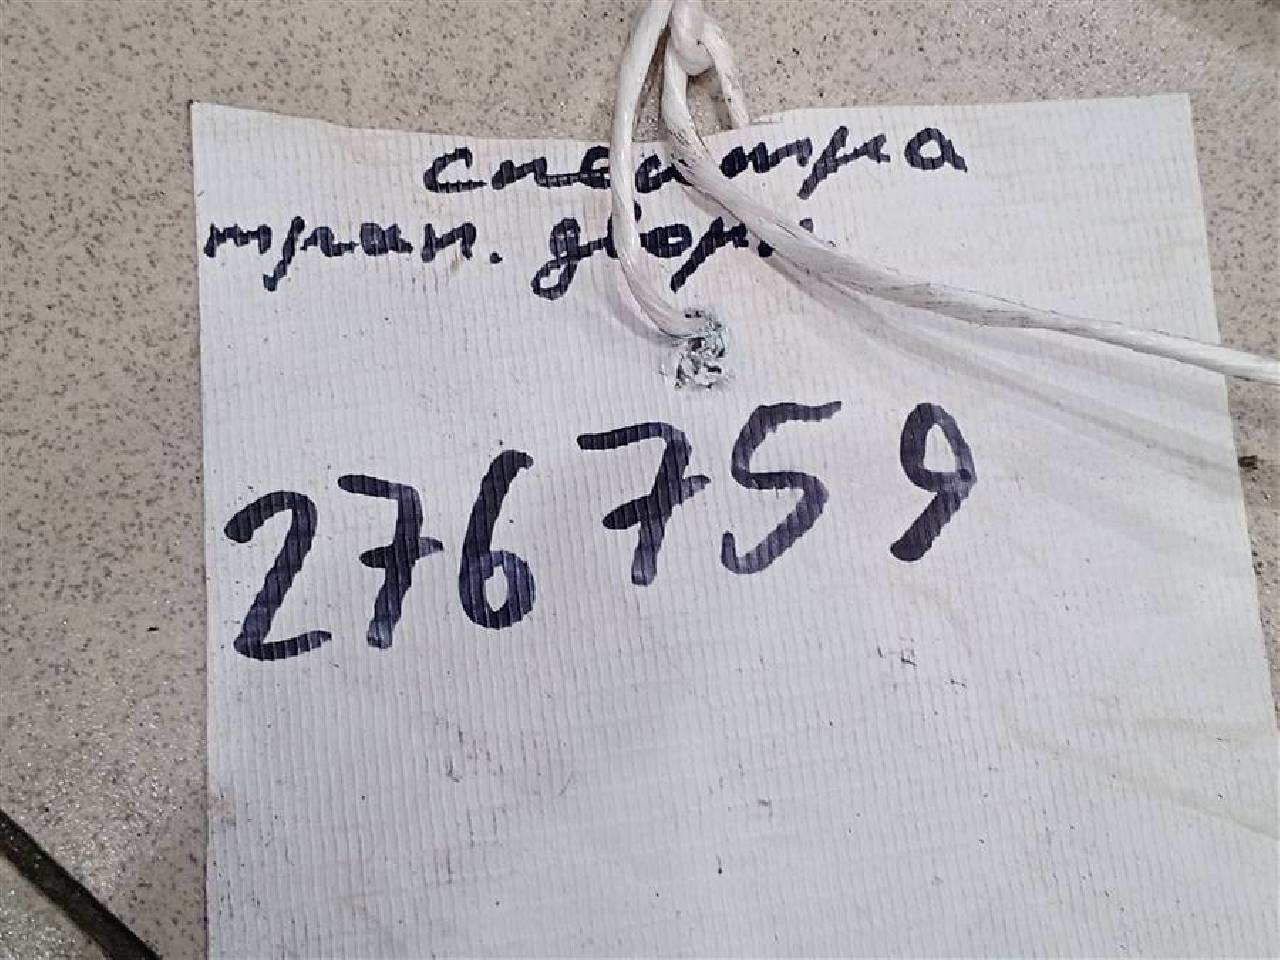 спектра
трап. дворн.
276 759